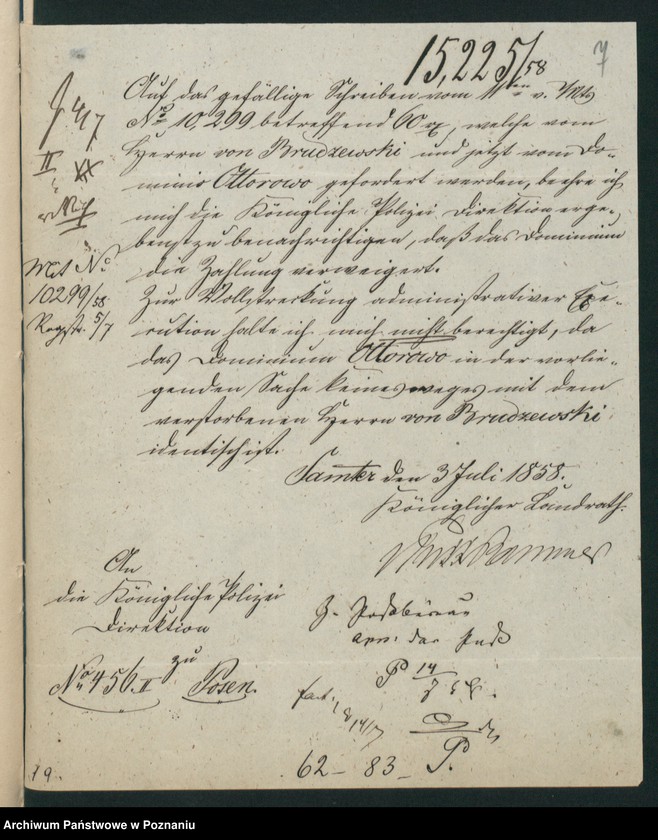 15,225/58
7
Auf das gefällige Schreiben vom 11ten v. Mts
No 10,299 betreffend 60 rt, welche vom
Herrn von Brudzewski und jetzt vom Do-
minio Ottorowo gefordert werden, beehre ich
mich die Königliche Polizei Direktion erge-
benst zu benachrichtigen, daß das Dominium
die Zahlung verweigert.
Zur Vollstreckung administrativer Exe-
cution halte ich mich nicht berechtigt, da
das Dominium Ottorowo in der vorlie-
genden Sache keinesweges mit dem
verstorbenen Herrn von Brudzewski
identisch ist.
Samter den 3 Juli 1858.
Königlicher Landrath
4/7
II
Mit No
10299/58
Regstr. 5/7
An
die Königliche Polizei
Direktion
zu
No 456. II Posen.
P 14
14/7
62 - 83 - P.
19.
Archiwum Państwowe w Poznaniu